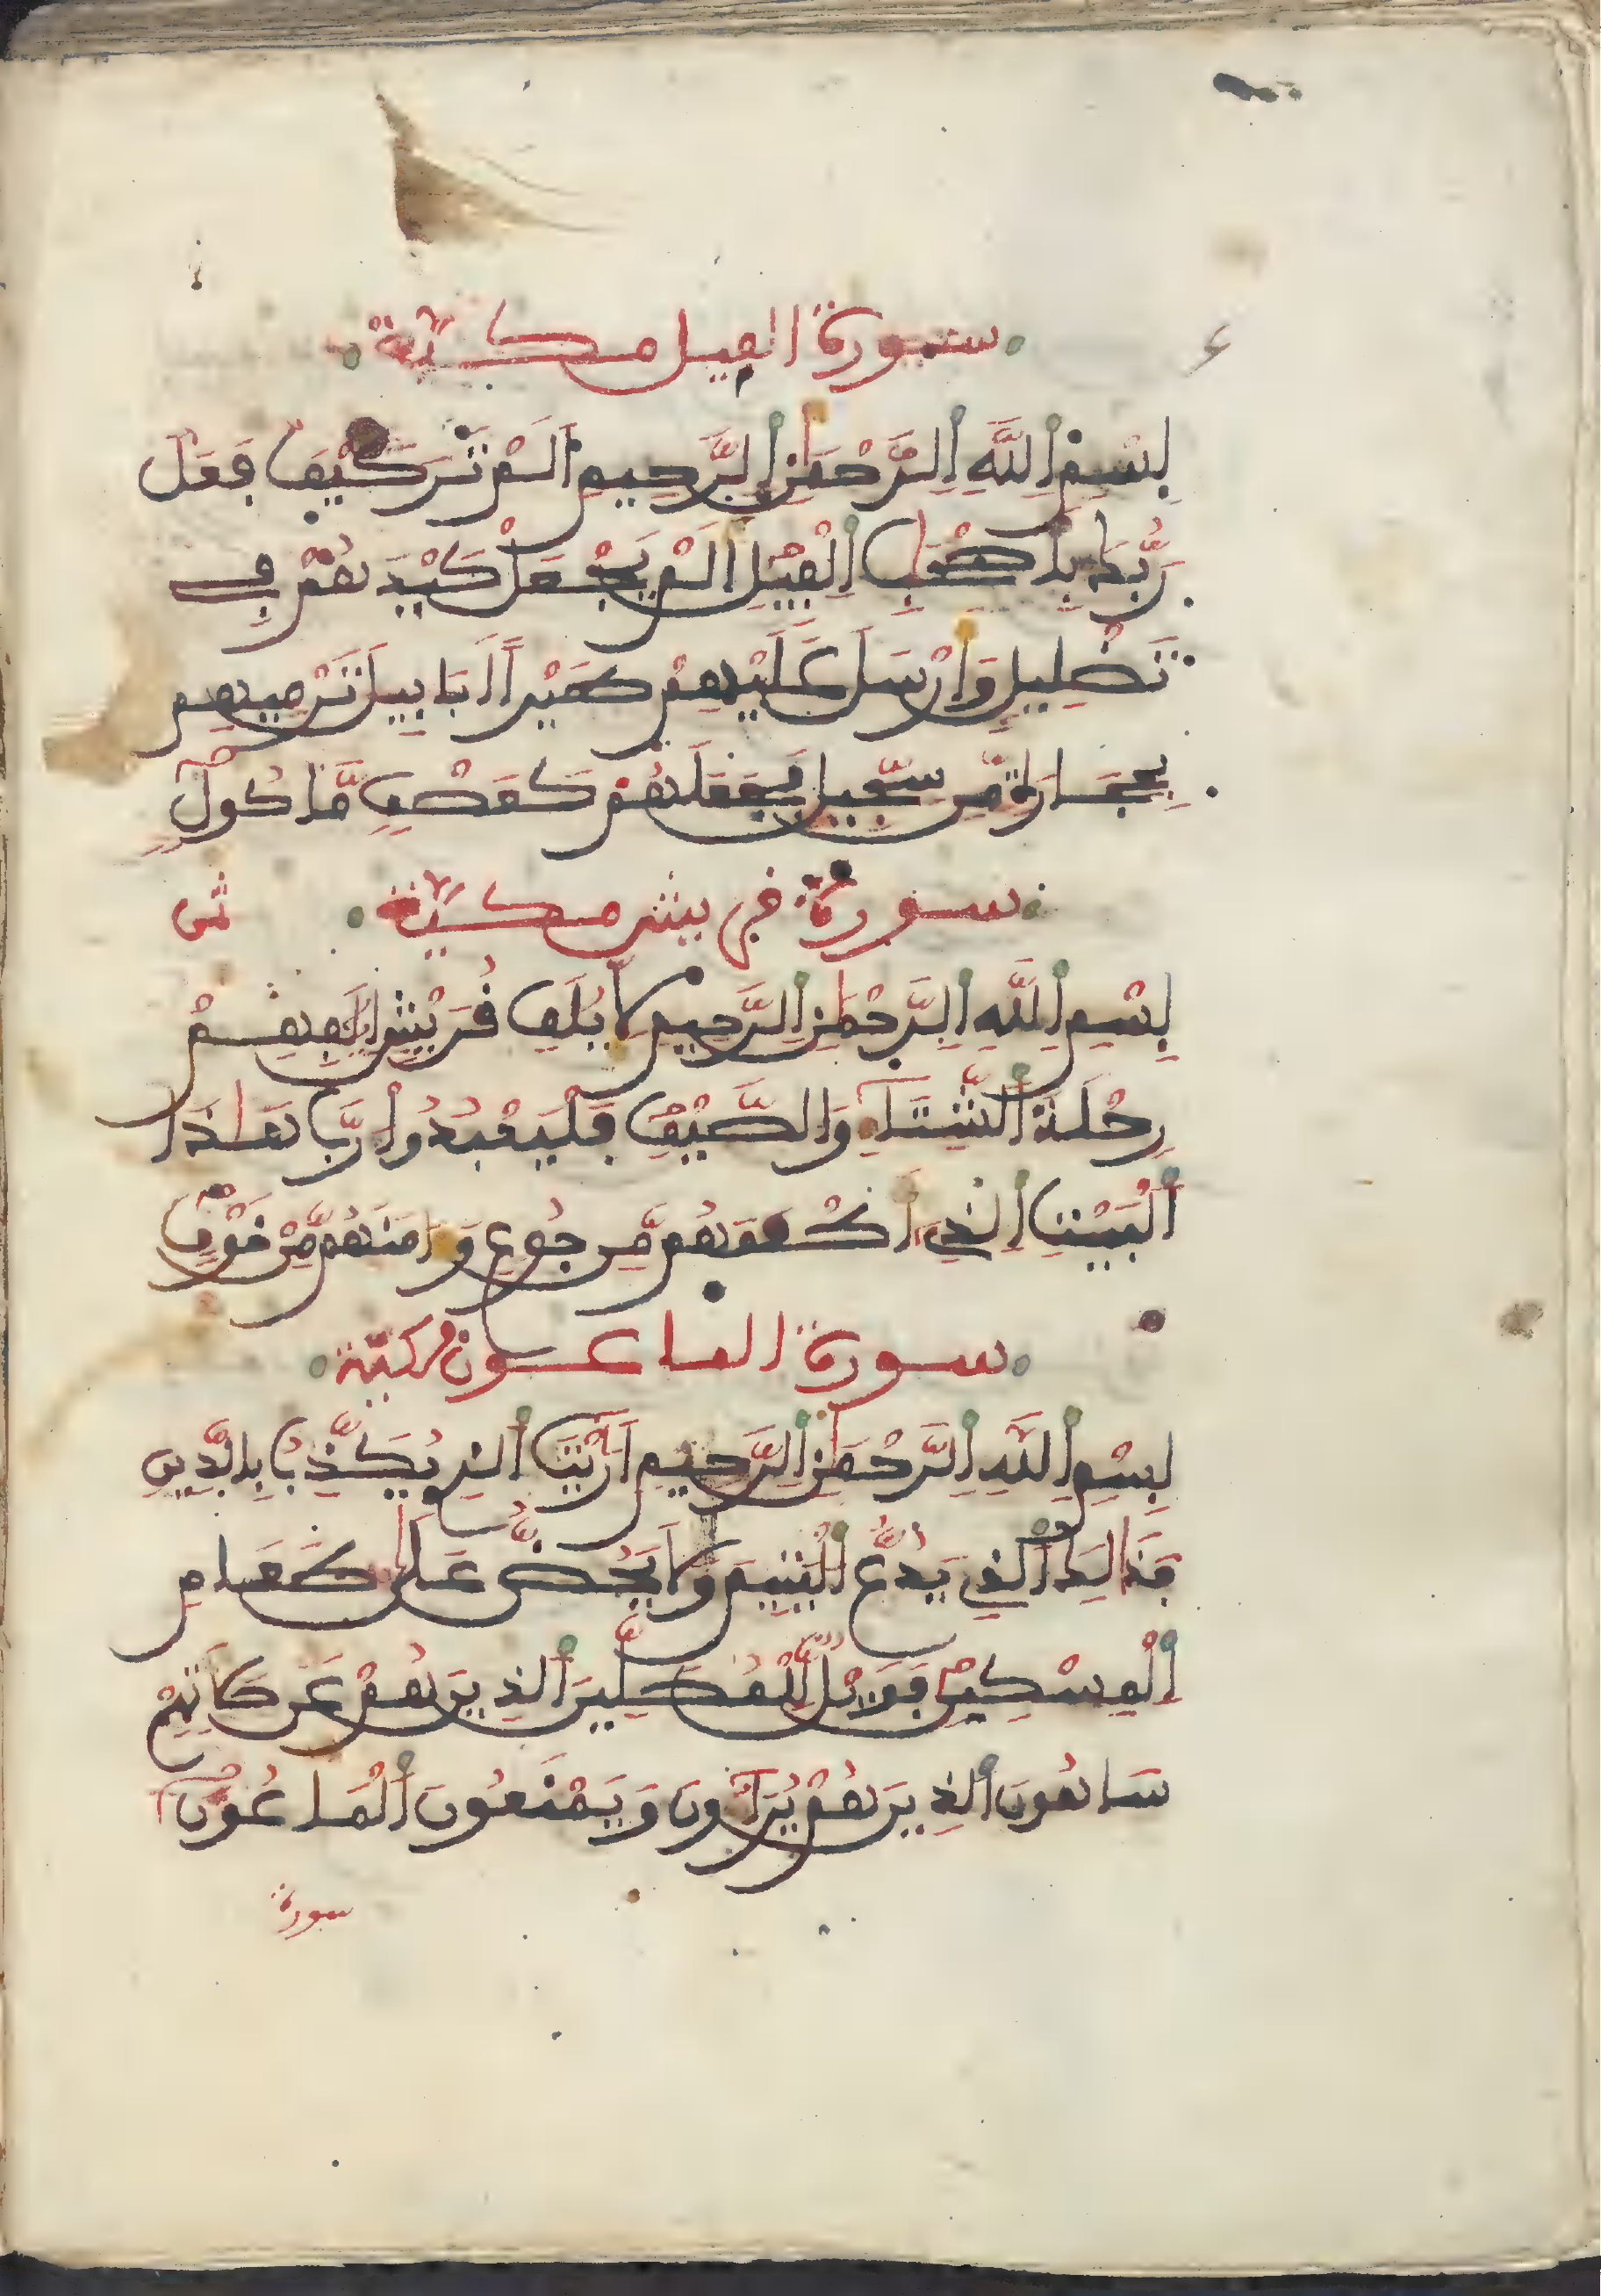 سورة الفيل مكية
بِسْمِ اِ۬للَّهِ اِ۬لرَّحْمَٰنِ اِ۬لرَّحِيمِ أَلَمْ تَرَ كَيْفَ فَعَلَ
رَبُّكَ بِأَصْحَٰبِ اِ۬لْفِيلِ أَلَمْ يَجْعَلْ كَيْدَهُمْ فِي
تَضْلِيلٍ وَأَرْسَلَ عَلَيْهِمْ طَيْراً اَبَابِيلَ تَرْمِيهِم
بِحِجَارَةٍ مِّن سِجِّيلٍ فَجَعَلَهُمْ كَعَصْفٍ مَّاكُولٍ
سورة قريش مكية ثمن
بِسْمِ اِ۬للَّهِ اِ۬لرَّحْمَٰنِ اِ۬لرَّحِيمِ لِإِيلَٰفِ قُرَيْشٍ اِۦلَٰفِهِمْ
رِحْلَةَ اَ۬لشِّتَآءِ وَالصَّيْفِ فَلْيَعْبُدُواْ رَبَّ هَٰذَا
اَ۬لْبَيْتِ اِ۬لذِي أَطْعَمَهُم مِّن جُوعٍ وَءَامَنَهُم مِّنْ خَوْفٍ
سورة الماعون مكية
بِسْمِ اِ۬للَّهِ اِ۬لرَّحْمَٰنِ اِ۬لرَّحِيمِ أَرَٰٓيْتَ اَ۬لذِي يُكَذِّبُ بِالدِّينِ
فَذَٰلِكَ اَ۬لذِي يَدُعُّ اُ۬لْيَتِيمَ وَلَا يَحُضُّ عَلَىٰ طَعَامِ
اِ۬لْمِسْكِينِ فَوَيْلٌ لِّلْمُصَلِّينَ اَ۬لذِينَ هُمْ عَن صَلَاتِهِمْ
سَاهُونَ اَ۬لذِينَ هُمْ يُرَآءُونَ وَيَمْنَعُونَ اَ۬لْمَاعُونَ
سورة